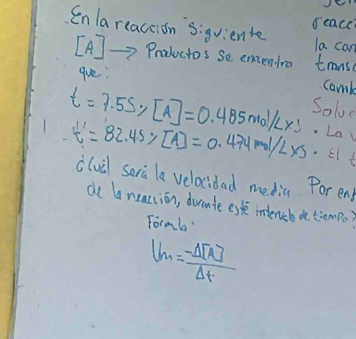 En la reacción Siguiente
[A] → Productos Se encentra
que:
t = 7.5S, [A] = 0.485 mol/LxS
t' = 82.4S, [A] = 0.474 mol/LxS
¿Cuál será la velocidad media
de la reacción, durante este intervalo de tiempo?
Fórmula:
Vm = -Δ[A] / Δt
reacci
la can
transc
Camb
Soluc
• La v
• El t
Por en